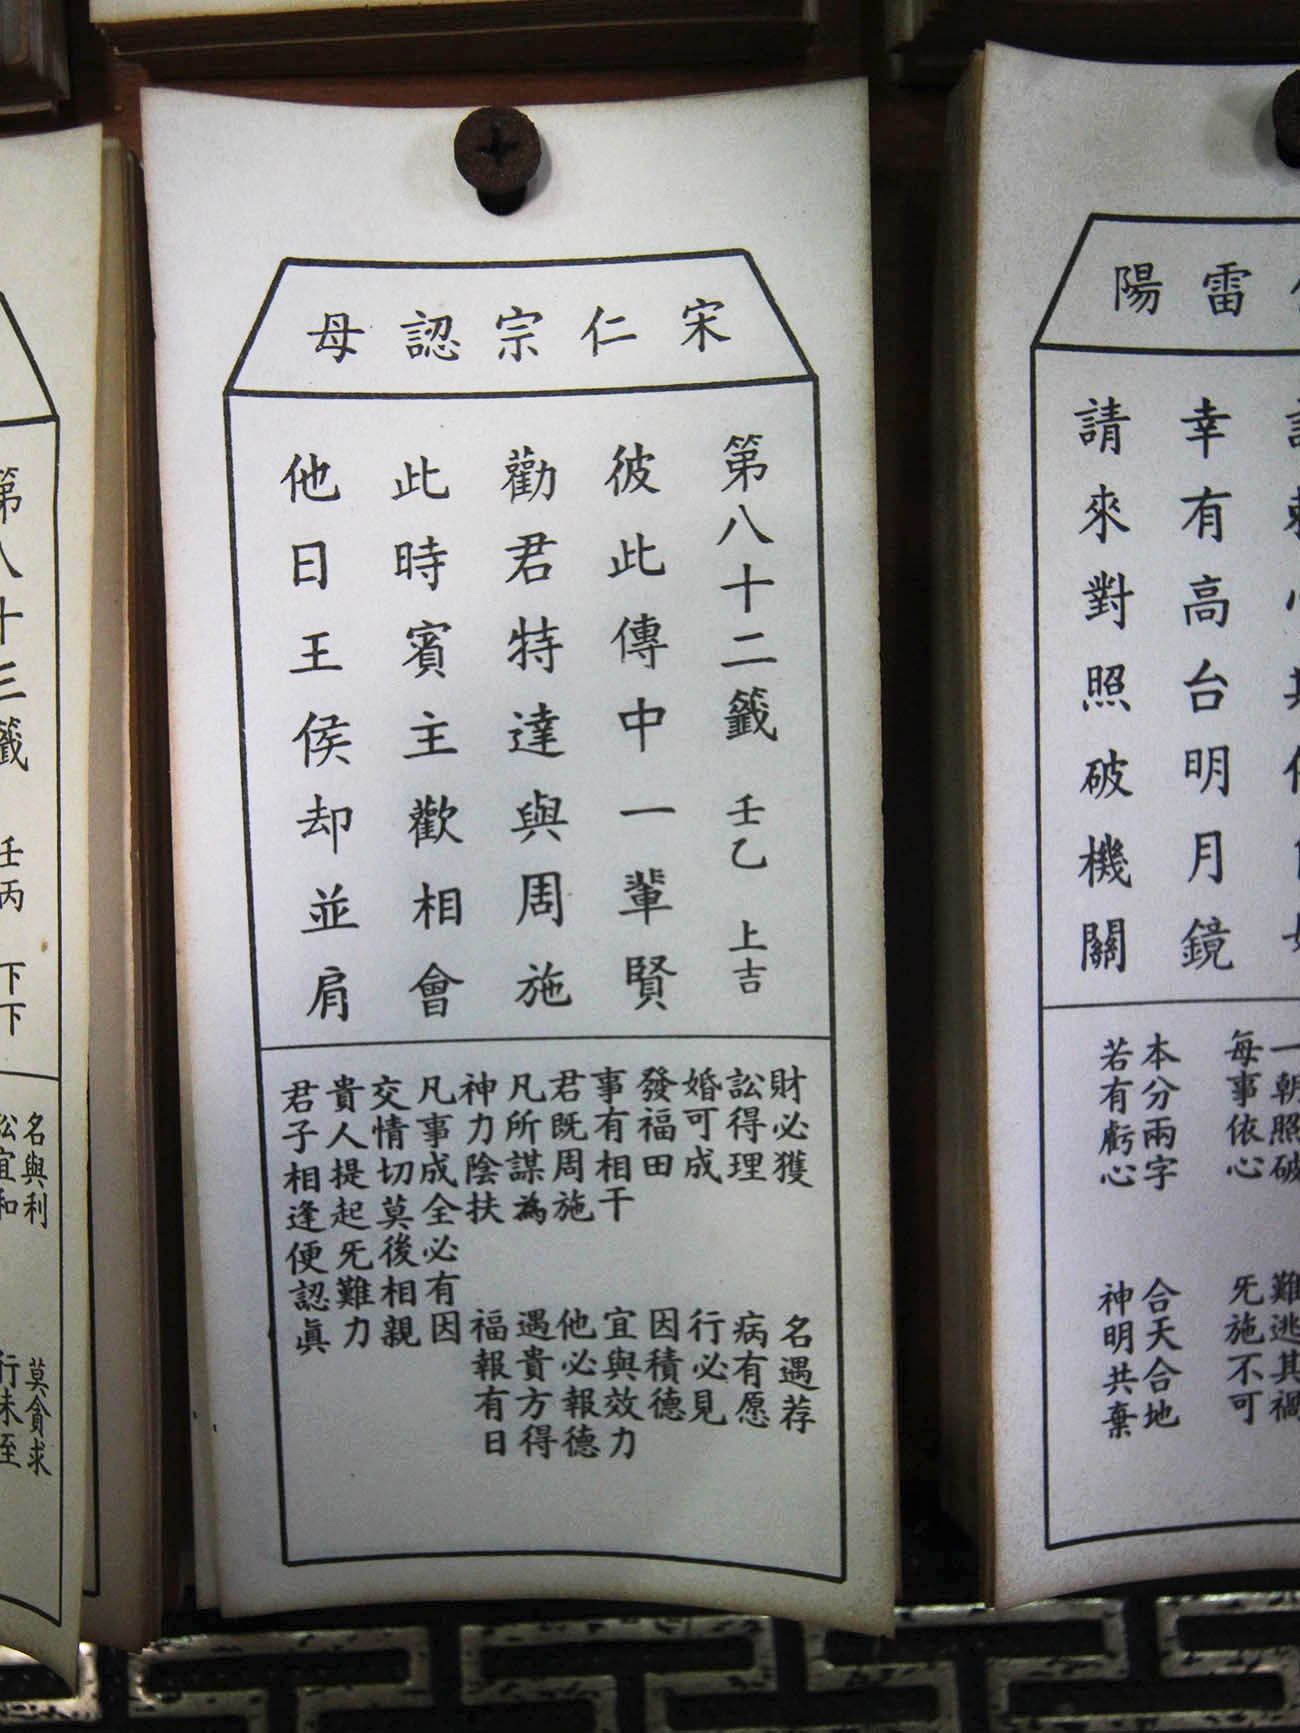 雷陽
幸有高台明月鏡
請來對照破機關
一朝照破 難逃其禍
每事依心 旡施不可
本分兩字 合天合地
若有虧心 神明共棄
宋仁宗認母
第八十二籤 壬乙 上吉
彼此傳中一輩賢
勸君特達與周施
此時賓主歡相會
他日王侯却並肩
財必獲 名遇荐
訟得理 病有愿
婚可成 行必見
發福田 因積德
事有相干 宜與效力
君既周施 他必報德
凡所謀為 遇貴方得
神力陰扶 福報有日
凡事成全必有因
交情切莫後相親
貴人提起旡難力
君子相逢便認眞
第八十三籤 壬丙 下下
名與利 莫貪求
訟宜和 行未至